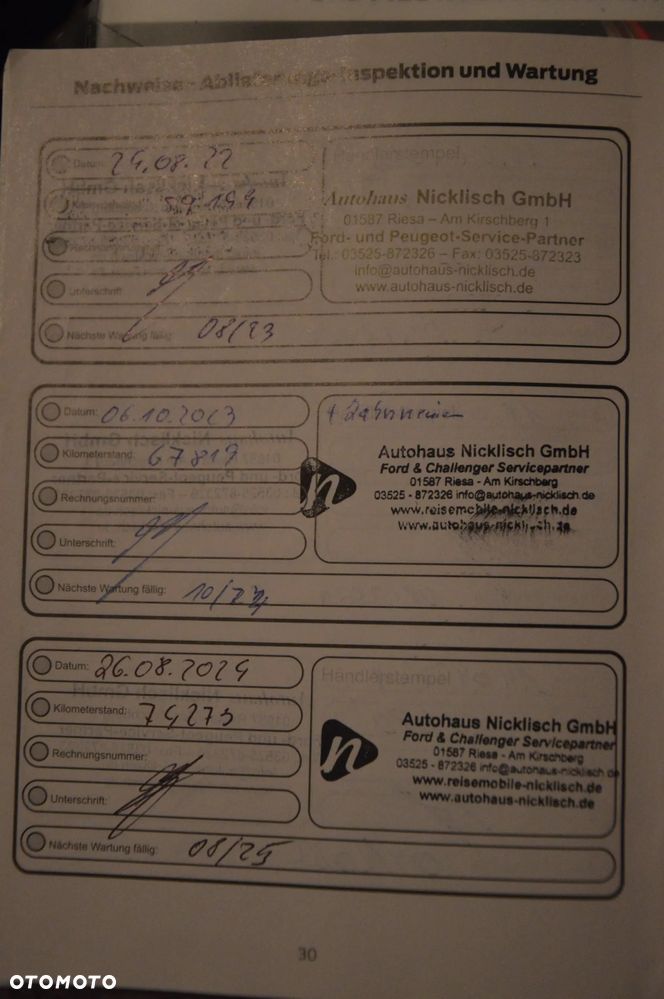 Nachweise - Ablieferungs-Inspektion und Wartung
Datum: 24.08.22
Händlerstempel
Kilometerstand: 59194
Autohaus Nicklisch GmbH
01587 Riesa – Am Kirschberg 1
Ford- und Peugeot-Service-Partner
Tel.: 03525-872326 – Fax: 03525-872323
info@autohaus-nicklisch.de
www.autohaus-nicklisch.de
Rechnungsnummer:
Unterschrift:
Nächste Wartung fällig: 08/23
Datum: 06.10.2023
+ Zahnriemen
Kilometerstand: 67819
Autohaus Nicklisch GmbH
Ford & Challenger Servicepartner
01587 Riesa - Am Kirschberg
03525 - 872326 info@autohaus-nicklisch.de
www.reisemobile-nicklisch.de
www.autohaus-nicklisch.de
n
Rechnungsnummer:
Unterschrift:
Nächste Wartung fällig: 10/24
Datum: 26.08.2024
Händlerstempel
Kilometerstand: 74273
Autohaus Nicklisch GmbH
Ford & Challenger Servicepartner
01587 Riesa - Am Kirschberg
03525 - 872326 info@autohaus-nicklisch.de
www.reisemobile-nicklisch.de
www.autohaus-nicklisch.de
n
Rechnungsnummer:
Unterschrift:
Nächste Wartung fällig: 08/25
30
OTOMOTO